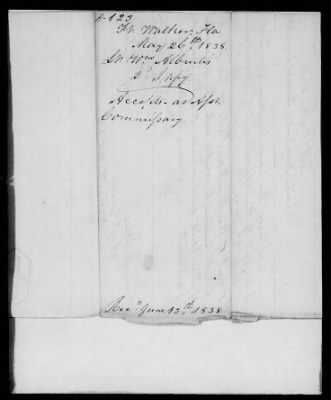 A-123
Ft. Walker, Fla
May 26th 1838.
Lt. Wm Alburtis
2d Infy
Accepts as Asst.
Commissary
Recd June 13th 1838